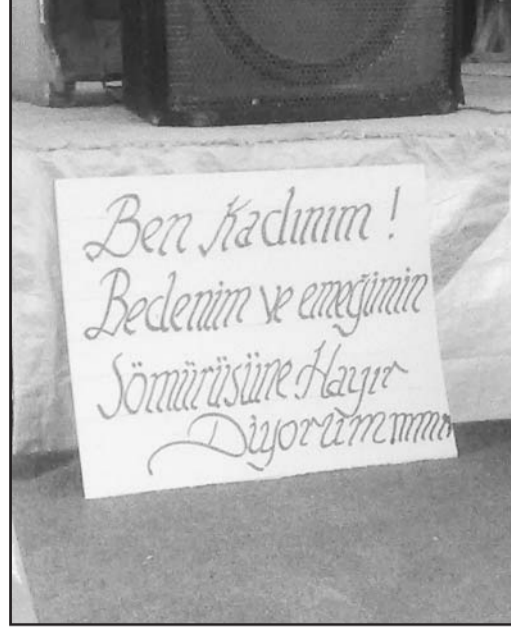 Ben Kadınım !
Bedenim ve emeğimin
Sömürüsüne Hayır
Diyorummmmm